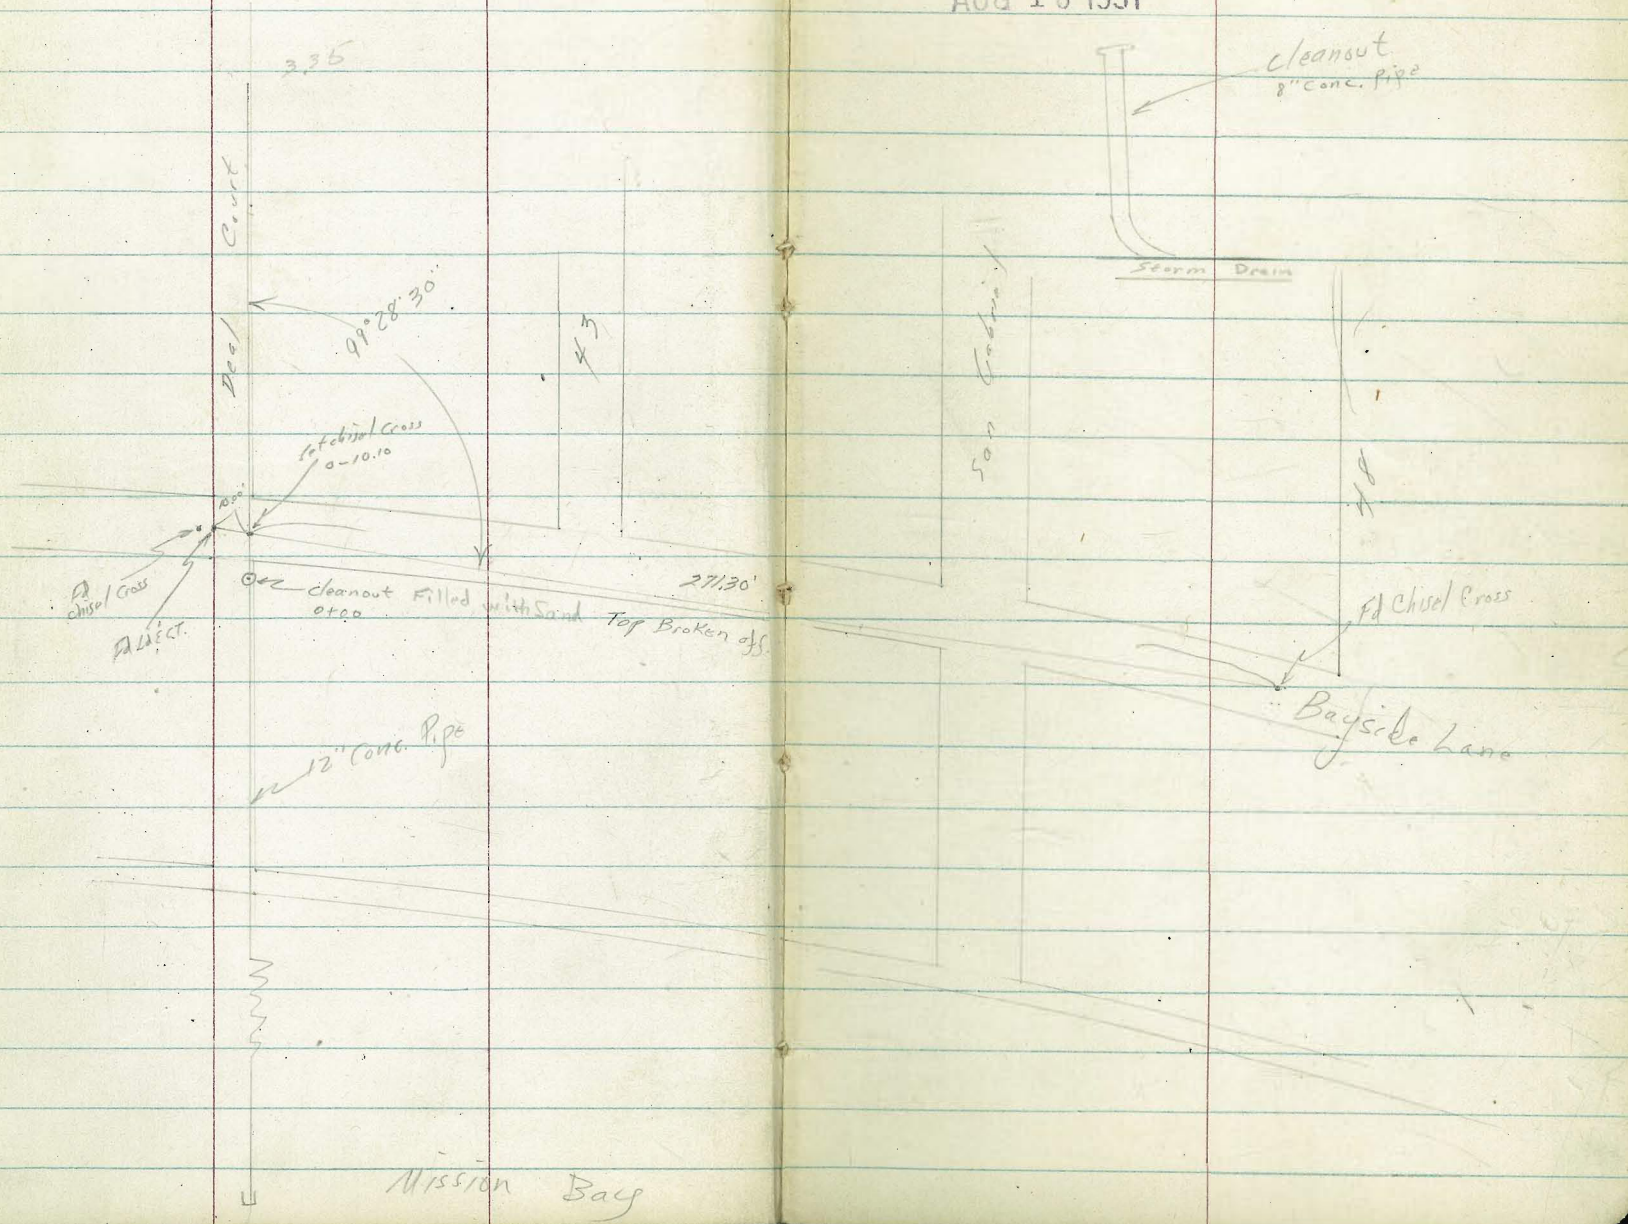 AUG 16 1951
335
Deal Court
99° 28' 30"
43
Set chisel Cross
0-10.10
10.00'
Fd
chisel Cross
Fd L&CT.
cleanout Filled with Sand
0+00
271.30'
Top Broken off.
12" Conc. Pipe
Mission Bay
cleanout
8" Conc. Pipe
Storm Drain
San Gabriel
48
Fd Chisel Cross
Bayside Lane